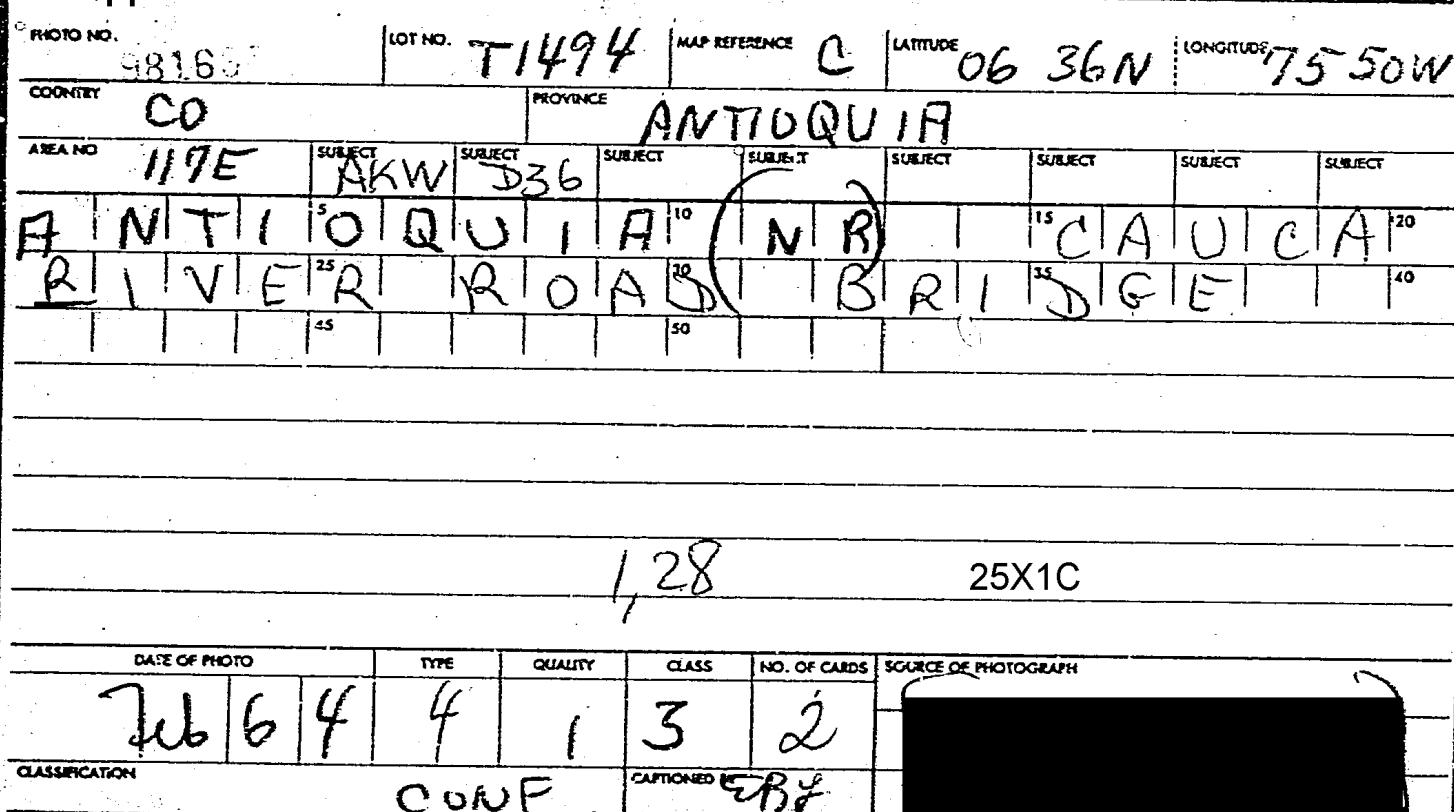 PHOTO NO. LOT NO. T1494 MAP REFERENCE C LATITUDE 06 36N LONGITUDE 75 50W
COUNTRY CO PROVINCE ANTIOQUIA
AREA NO 117E SUBJECT AKW SUBJECT D36 SUBJECT SUBJECT SUBJECT SUBJECT SUBJECT SUBJECT
ANTI 5 OQUIA 10 (NR) 15 CAUCA 20
RIVE 25 R ROAD 30 BRI 35 DGE 40
45 50
1,28 25X1C
DATE OF PHOTO TYPE QUALITY CLASS NO. OF CARDS SOURCE OF PHOTOGRAPH
Feb 64 4 1 3 2
CLASSIFICATION CONF CAPTIONED BY